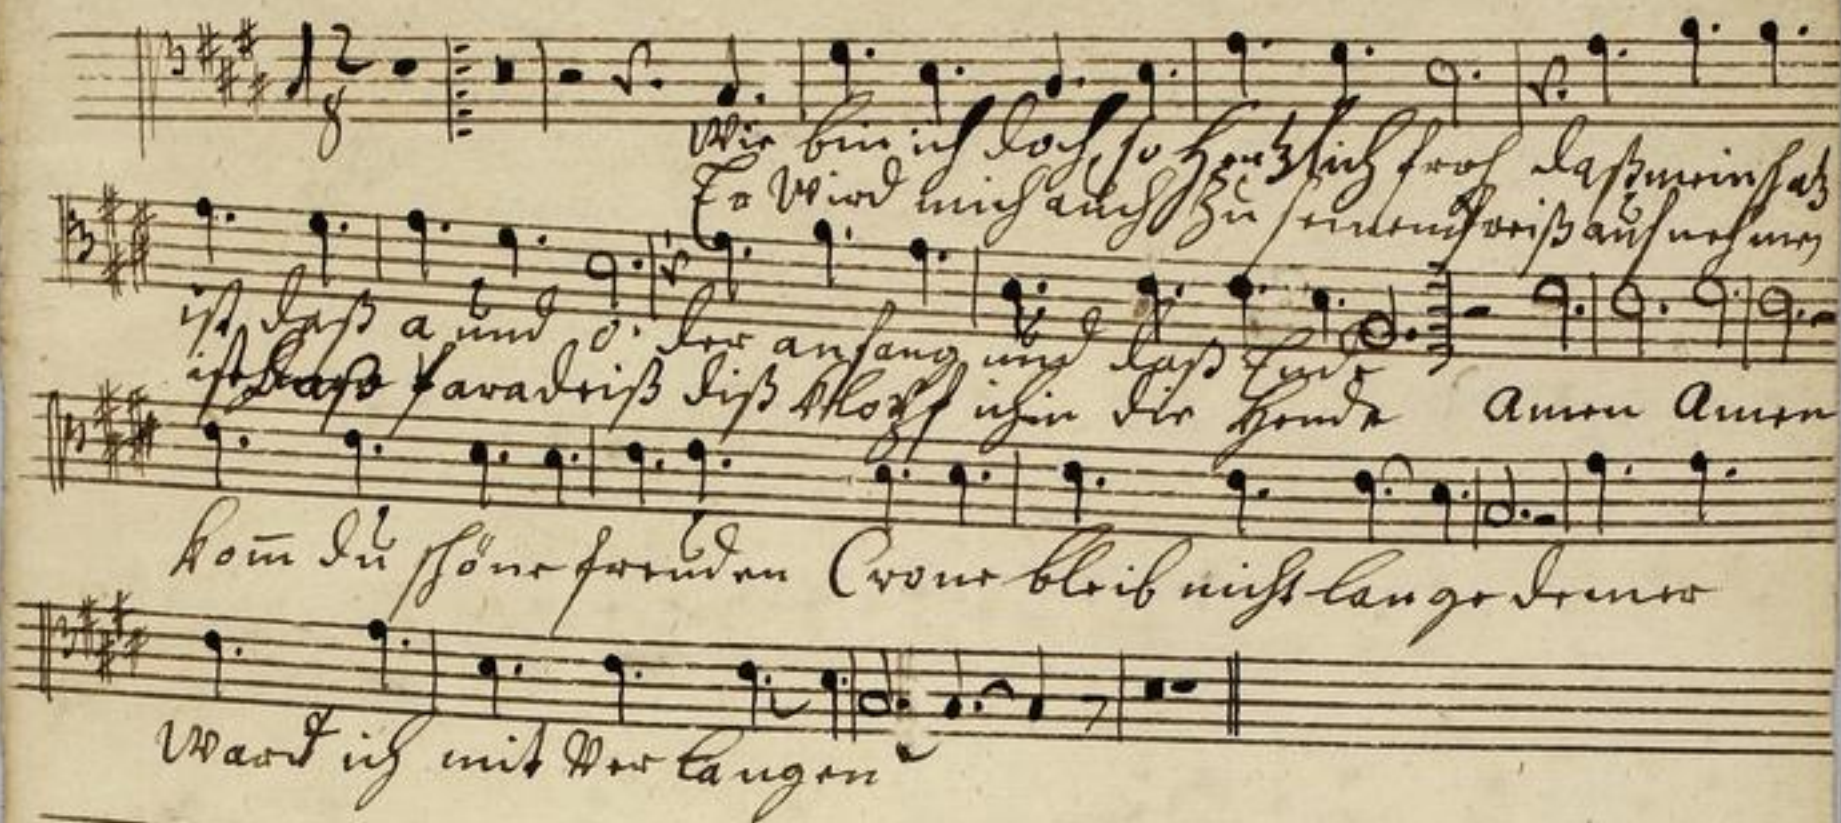 12
8
Wie bin ich doch, so Hertzlich froh daß mein schatz
Er Wird mich auch Zu seinem Preiß auf nehmen
ist, daß a und o. der anfang und daß Ende
ist daß Paradeiß diß Klopf ich in die Hende Amen Amen
Kom̄ du schöne freuden Crone bleib nicht lange deiner
Wardt ich mit Verlangen